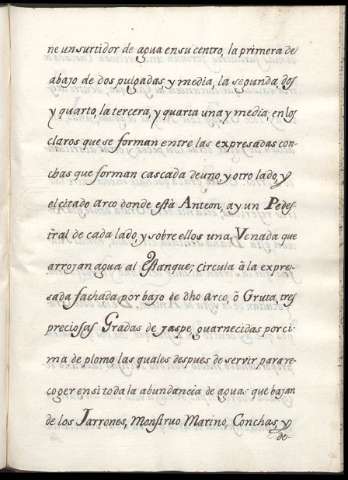 ne un surtidor de agua en su centro, la primera de
abajo de dos pulgadas y media, la segunda dos
y quarto, la tercera, y quarta una y media, en los
claros que se forman entre las expresadas con-
chas que forman cascada de uno y otro lado, y
el citado arco donde està Anteon, ay un Pedes-
tral de cada lado y sobre ellos una Venada que
arrojan agua al Estanque; circula à la expre-
sada fachada por bajo de dho Arco, ò Gruta, tres
preciosas Gradas de jaspe guarnecidas por ci-
ma de plomo las quales despues de servir para re-
coger en si toda la abundancia de aguas que bajan
de los Jarrones, Monstruo Marino, Conchas, y
de